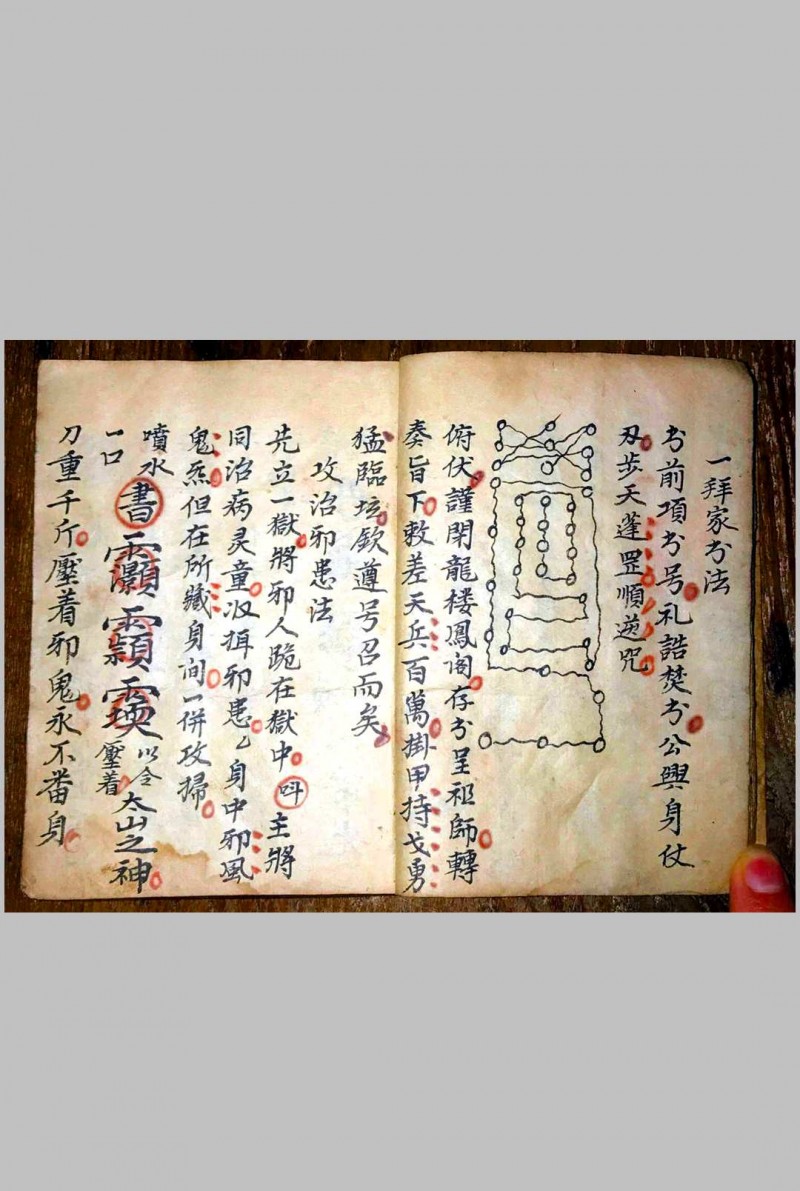 一拜家㕣法
㕣前項㕣号礼誥焚㕣公興身仗
刃步天蓬罡順逆咒
俯伏謹閉龍楼鳳阁存㕣呈祖師轉
奏旨下敕差天兵百萬掛甲持戈勇
猛臨坛欽遵号召而矣
攻治邪患法
先立一獄將邪人跪在獄中呌主將
同治病灵童収揖邪患乙身中邪風
鬼炁但在所藏身间一併攻掃
噴水
一口書灝 壓着以令太山之神
刀重千斤壓着邪鬼永不番身